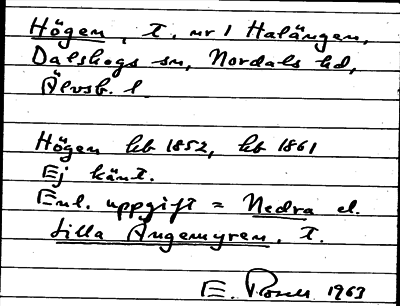 Högen, T. nr 1 Halängen,
Dalskogs sn, Nordals hd,
Älvsb. l.
Högen hb 1852, hb 1861
Ej känt.
Enl. uppgift = Nedra el.
Lilla Ängemyren. T.
E. 1963